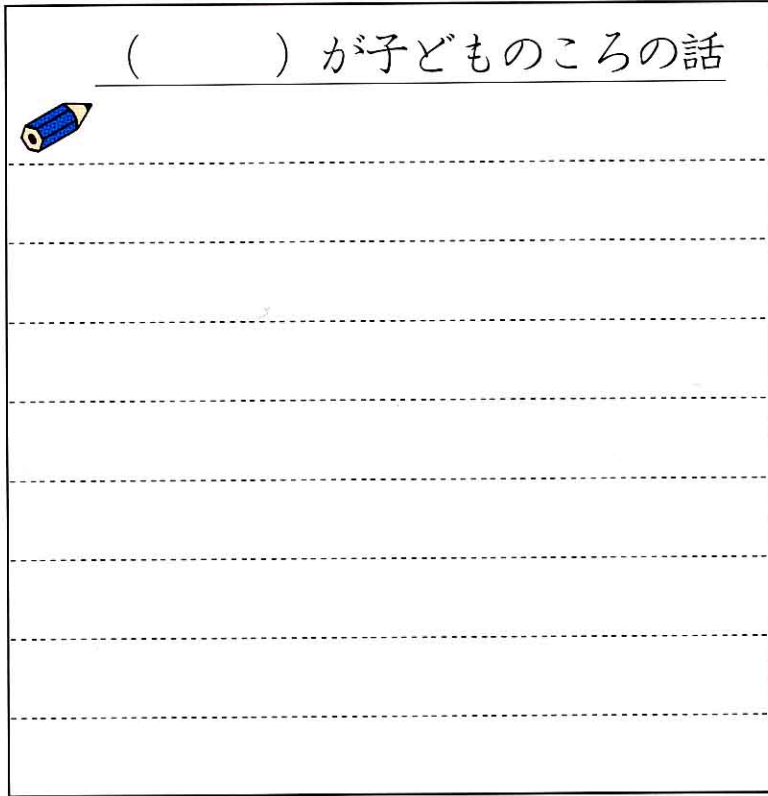 （　　　）が子どものころの話